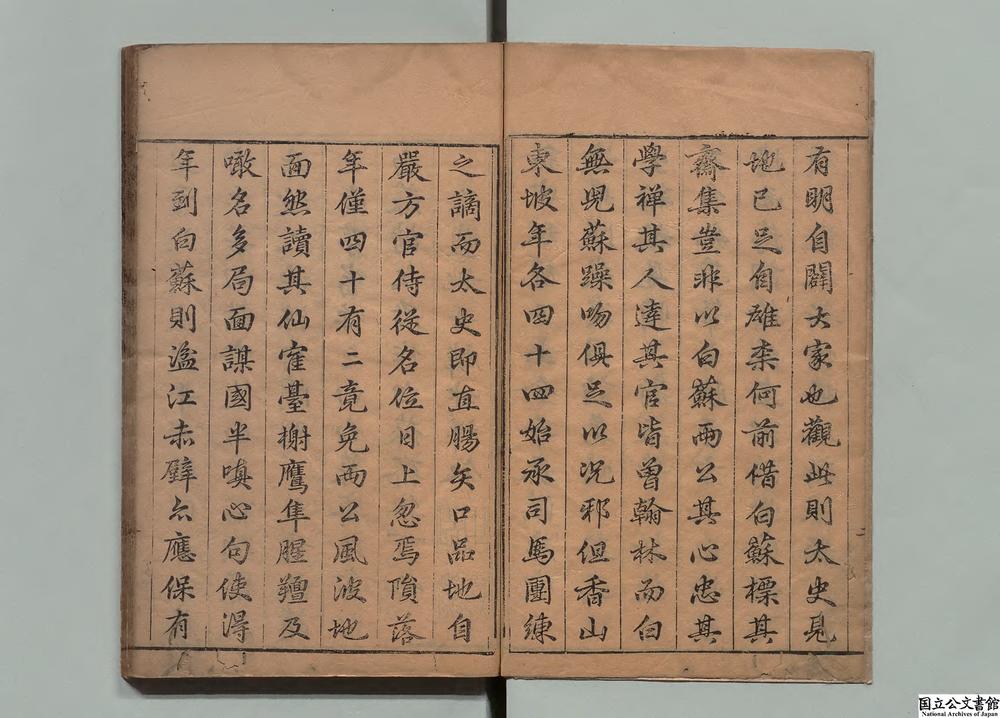 有明自闢大家也觀此則太史見
地已足自雄柰何前借白蘇標其
齋集豈非以白蘇兩公其心忠其
學禅其人達其官皆曽翰林而白
無兒蘇躁吻俱足以况邪但香山
東坡年各四十四始承司馬團練
之謫而太史即直腸矢口品地自
嚴方官侍從名位日上忽焉隕落
年僅四十有二竟免兩公風波地
面然讀其仙寉臺榭鷹隼腥羶及
噉名多局面謀國半嗔心句使得
年到白蘇則湓江赤壁亦應保有
国立公文書館
National Archives of Japan